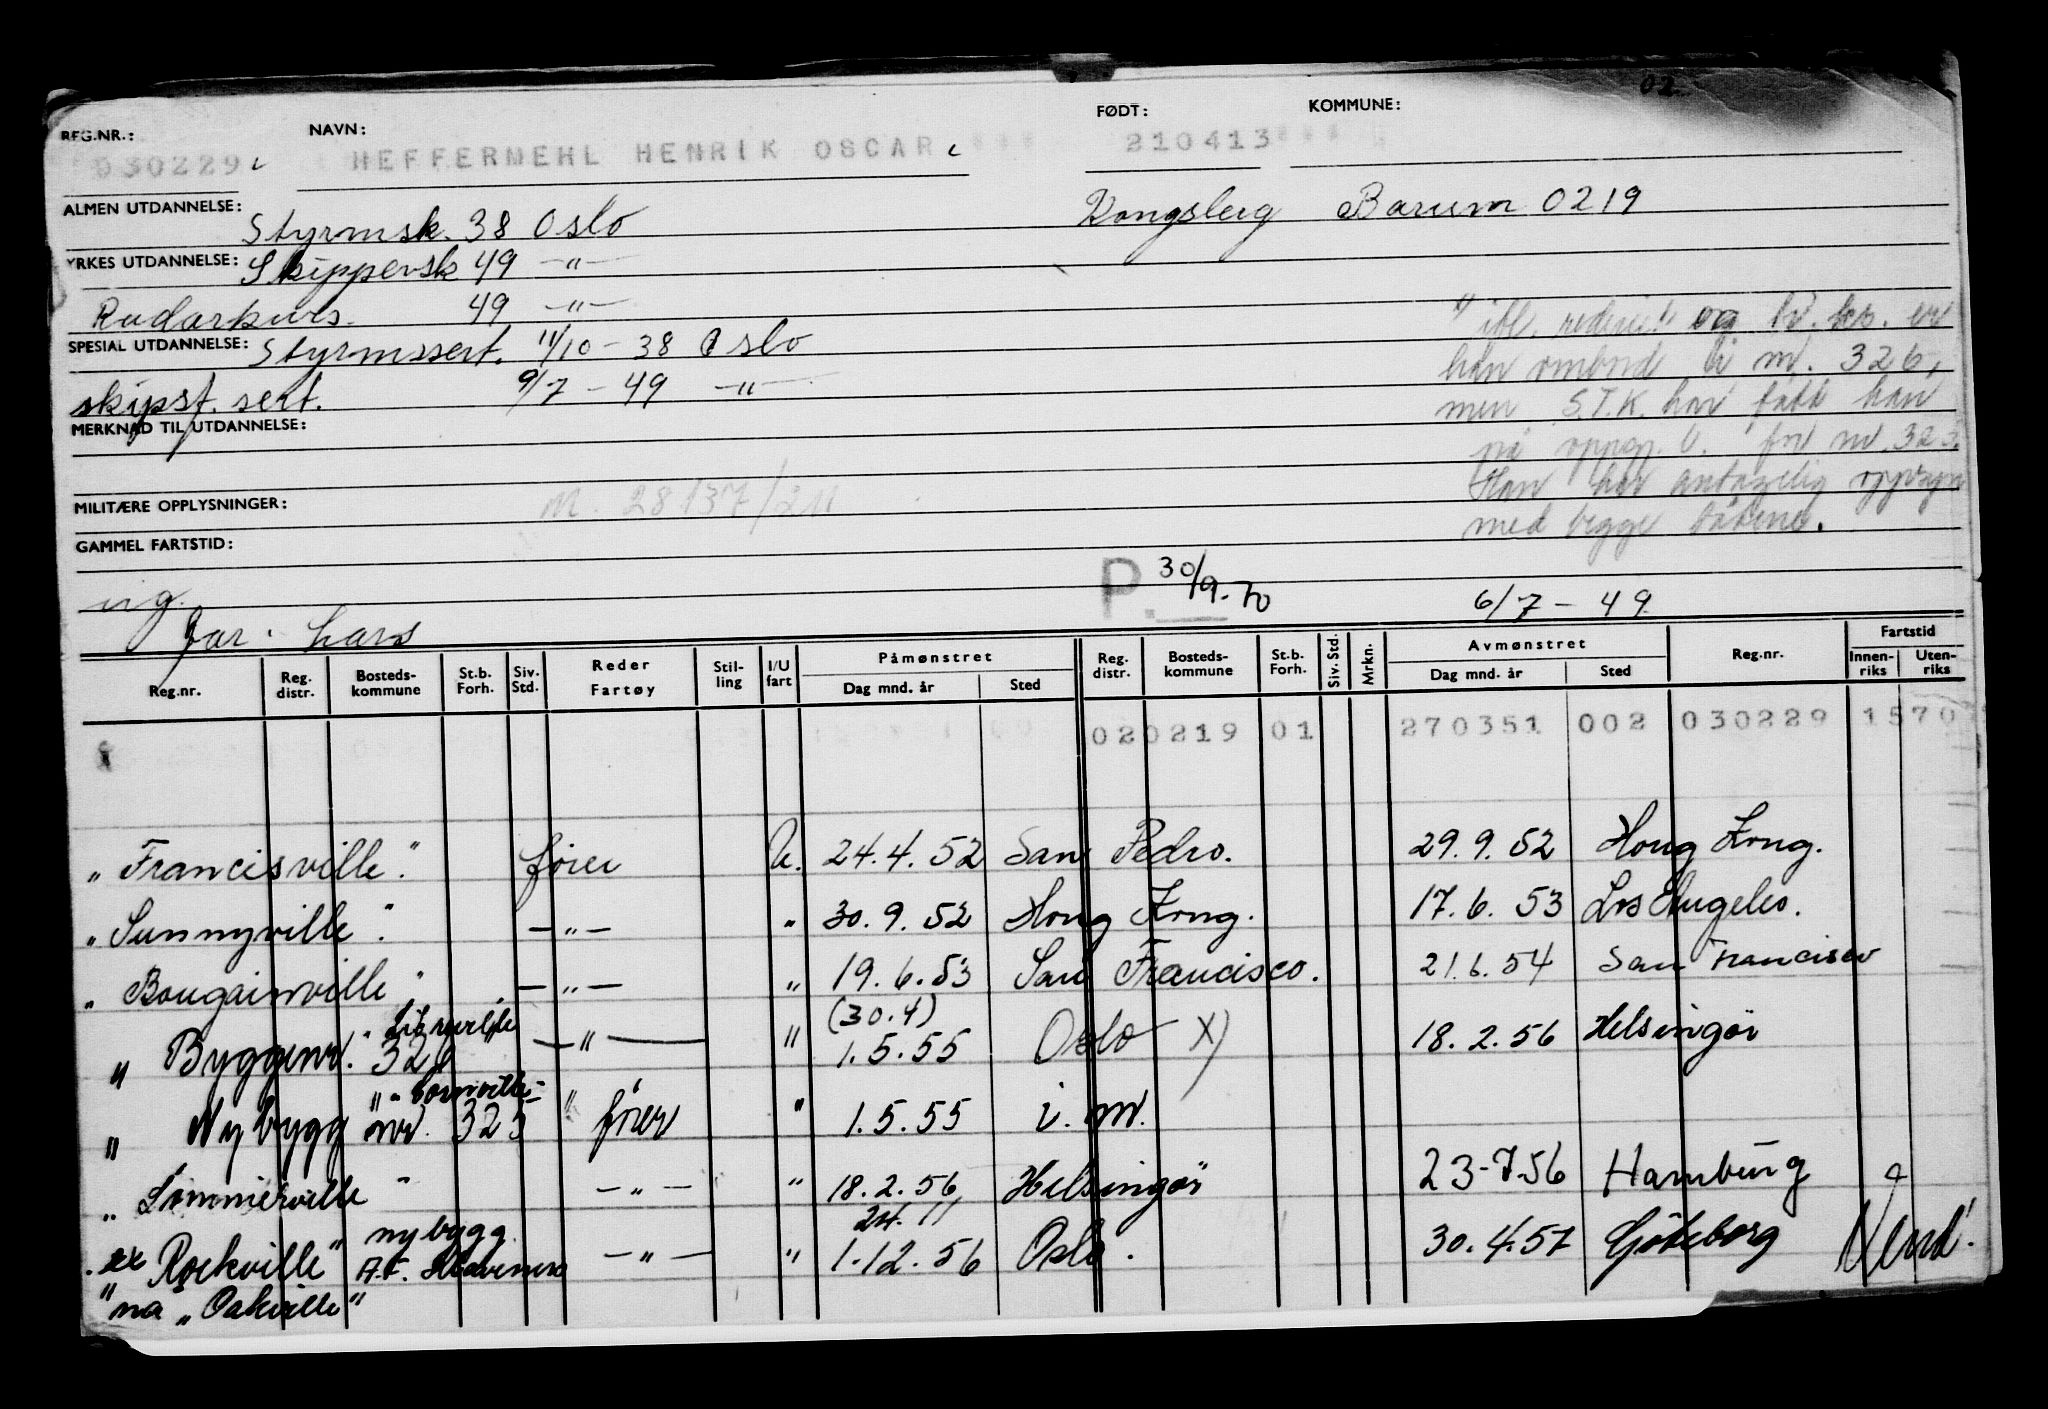 02
REG.NR.: NAVN: FØDT: KOMMUNE:
030229 HEFFERMEHL HENRIK OSCAR 210413
ALMEN UTDANNELSE: Styrmsk. 38 Oslo Kongsberg Bærum 0219
YRKES UTDANNELSE: Skippersk 49 —"—
Radarkurs. 49 —"—
SPESIAL UTDANNELSE: Styrmssert. 11/10 - 38 Oslo
skipsf. sert. 9/7 - 49 —"—
MERKNAD TIL UTDANNELSE:
1) ifl. rederiet og hv. kr. er
han ombord i nr. 326,
men S.T.K. har fått han
på oppg. for nr. 325.
Han har antagelig oppsyn
med begge båtene.
MILITÆRE OPPLYSNINGER: M. 28137/211
GAMMEL FARTSTID:
ug. P. 30/9-70 6/7 - 49
Far: Lars
Reg.nr. Reg. distr. Bosteds-kommune St.b. Forh. Siv. Std. Reder Fartøy Stilling I/U fart Påmønstret Dag mnd. år Sted Reg. distr. Bosteds-kommune St.b. Forh. Siv. Std. Mrkn. Avmønstret Dag mnd. år Sted Reg.nr. Fartstid Innen-riks Uten-riks
020219 01 270351 002 030229 1570
"Francisville". fører U. 24.4.52 San Pedro. 29.9.52 Hong Kong.
"Sunnyville". —"— " 30.9.52 Hong Kong. 17.6.53 Los Angeles.
"Bougainville" —"— " 19.6.53 San Francisco. 21.6.54 San Francisco
(30.4)
" Byggenr. 326 —"— " 1.5.55 Oslo X) 18.2.56 Helsingör
" Nybygg nr. 325 " fører " 1.5.55 i. m.
"Sommerville" —"— " 18.2.56 Helsingör 23-7-56 Hamburg
24.11
ex "Rockville" nybygg. A.F. —"— " 1-12.56 Oslo. 30.4.57 Göteborg
" nå "Oakville"